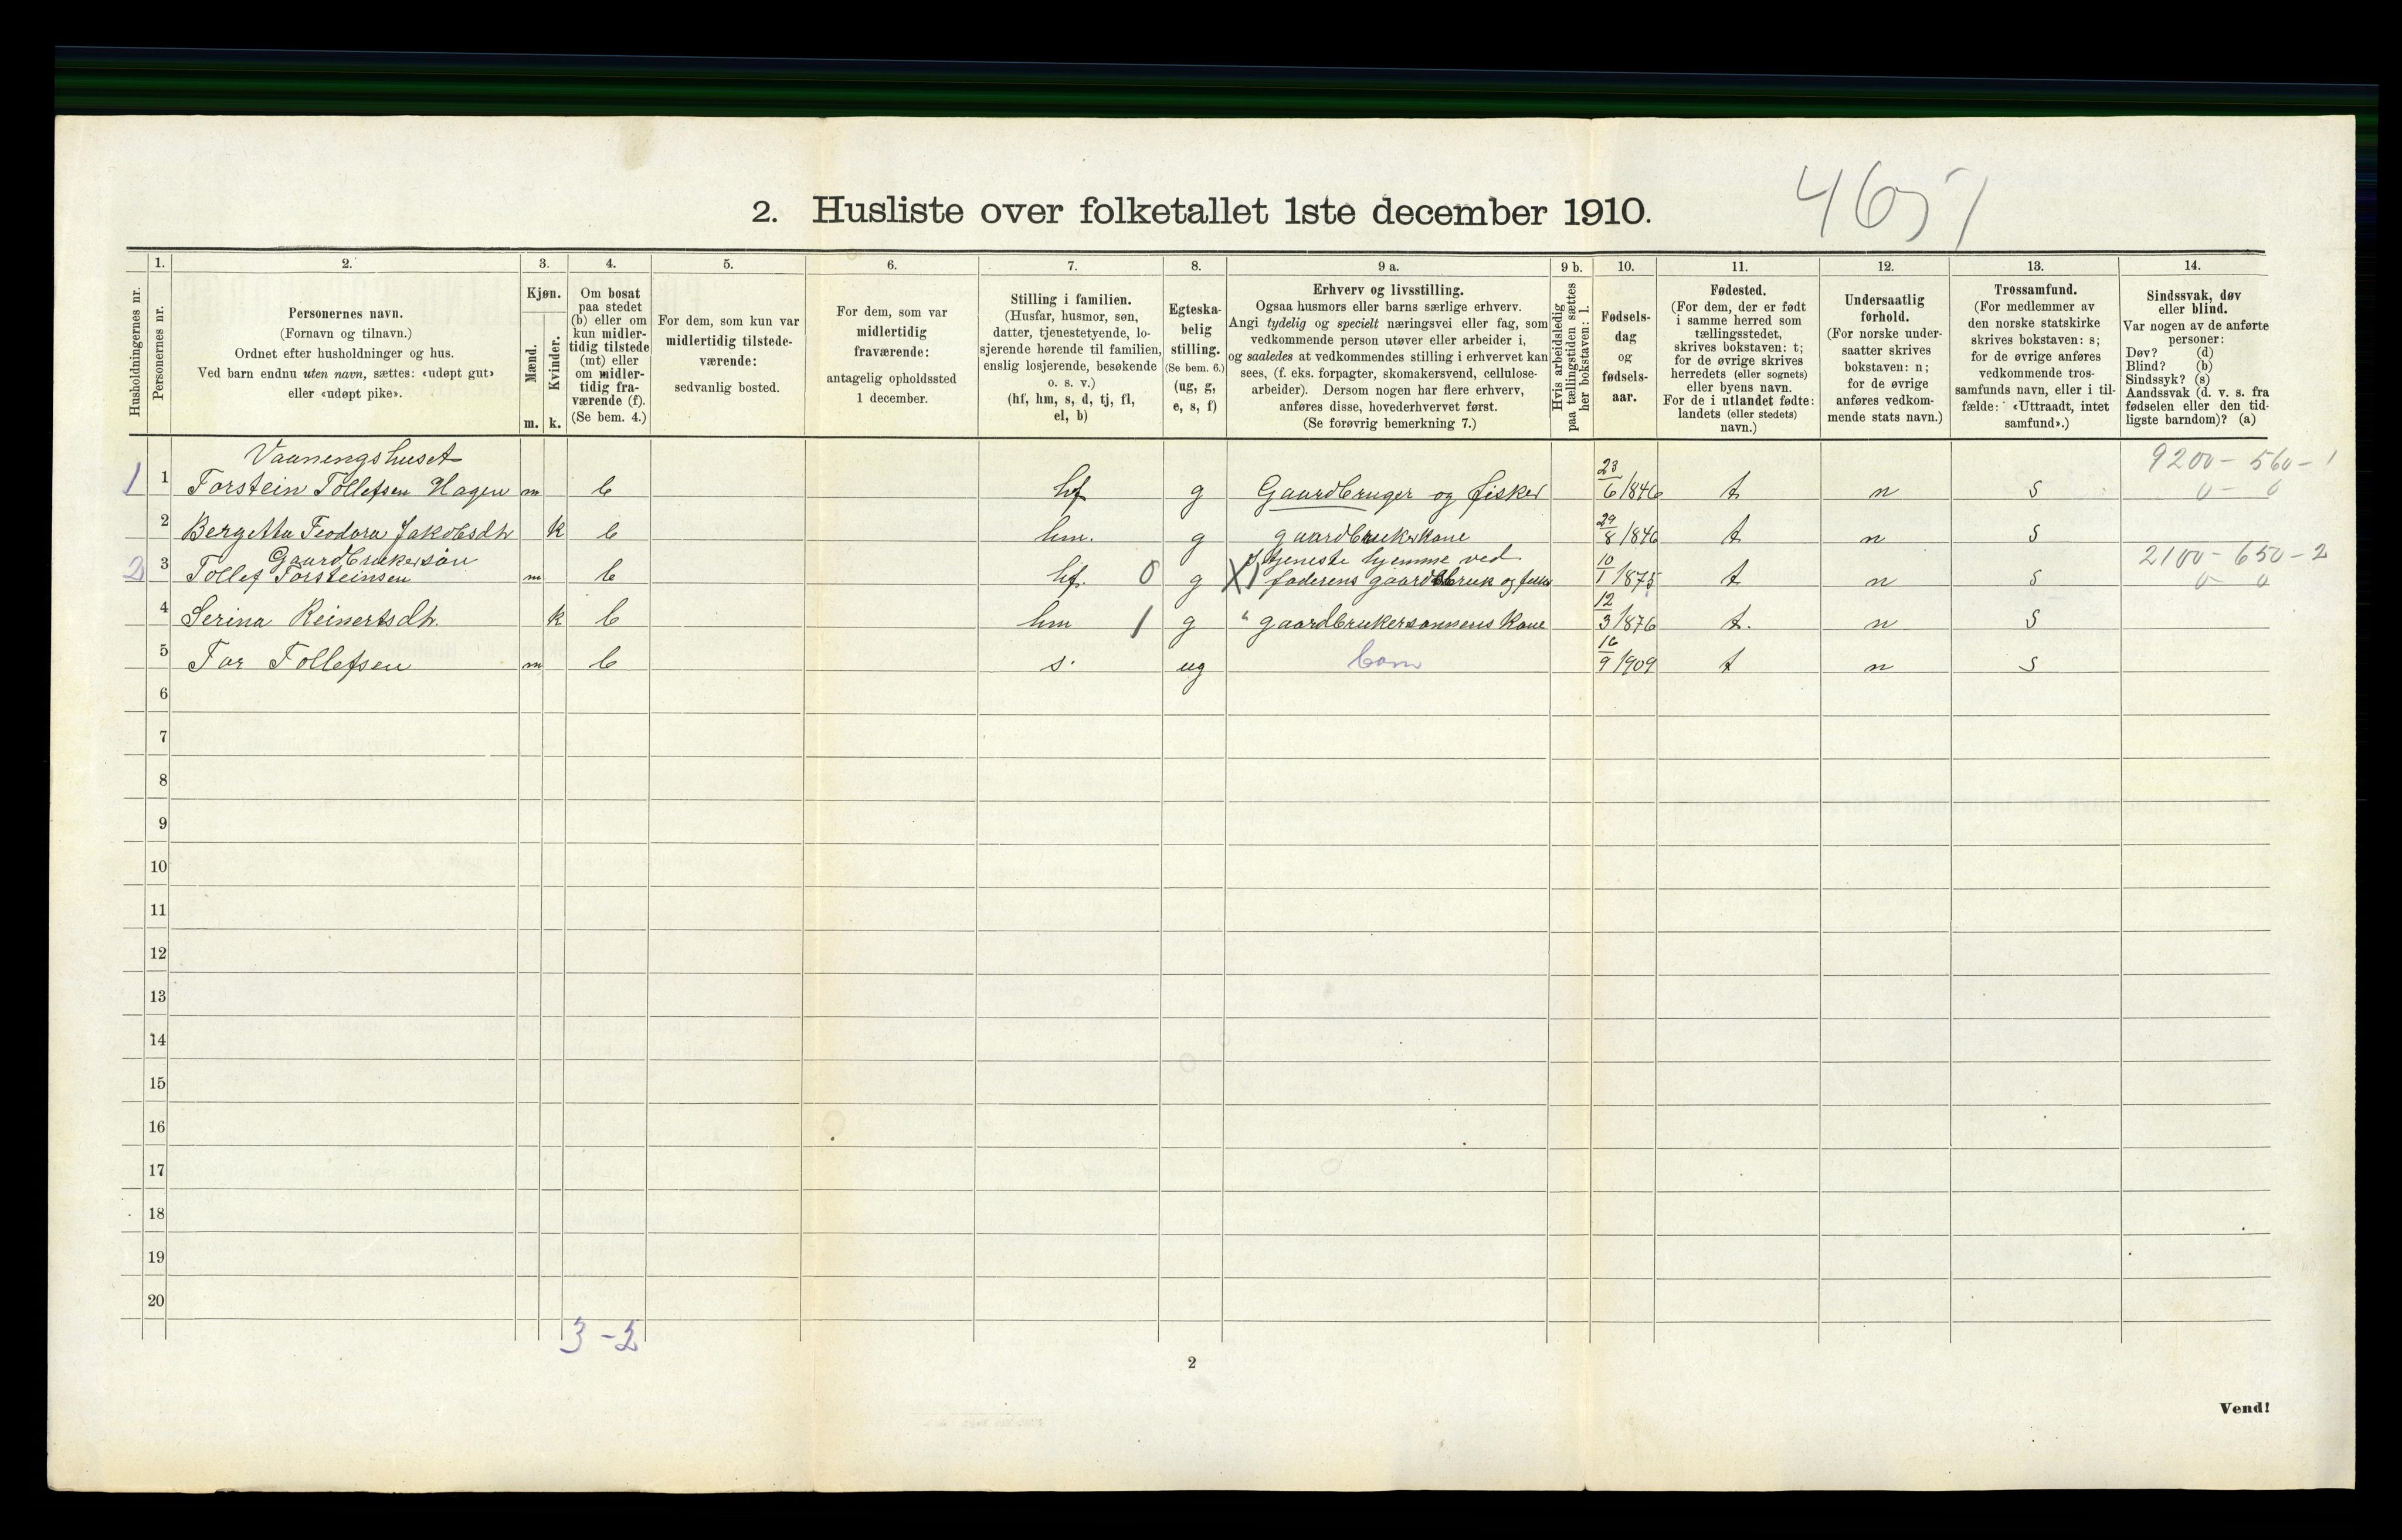 4651
2. Husliste over folketallet 1ste december 1910.
Husholdningernes nr.
1.
Personernes nr.
2.
Personernes navn.
(Fornavn og tilnavn.)
Ordnet efter husholdninger og hus.
Ved barn endnu uten navn, sættes: «udøpt gut»
eller «udøpt pike».
3.
Kjøn.
Mænd.
Kvinder.
m. k.
4.
Om bosat
paa stedet
(b) eller om
kun midler-
tidig tilstede
(mt) eller
om midler-
tidig fra-
værende (f).
(Se bem. 4.)
5.
For dem, som kun var
midlertidig tilstede-
værende:
sedvanlig bosted.
6.
For dem, som var
midlertidig
fraværende:
antagelig opholdssted
1 december.
7.
Stilling i familien.
(Husfar, husmor, søn,
datter, tjenestetyende, lo-
sjerende hørende til familien,
enslig losjerende, besøkende
o. s. v.)
(hf, hm, s, d, tj, fl,
el, b)
8.
Egteska-
belig
stilling.
(Se bem. 6.)
(ug, g,
e, s, f)
9 a.
Erhverv og livsstilling.
Ogsaa husmors eller barns særlige erhverv.
Angi tydelig og specielt næringsvei eller fag, som
vedkommende person utøver eller arbeider i,
og saaledes at vedkommendes stilling i erhvervet kan
sees, (f. eks. forpagter, skomakersvend, cellulose-
arbeider). Dersom nogen har flere erhverv,
anføres disse, hovederhvervet først.
(Se forøvrig bemerkning 7.)
9 b.
Hvis arbeidsledig
paa tællingstiden sættes
her bokstaven: l.
10.
Fødsels-
dag
og
fødsels-
aar.
11.
Fødested.
(For dem, der er født
i samme herred som
tællingsstedet,
skrives bokstaven: t;
for de øvrige skrives
herredets (eller sognets)
eller byens navn.
For de i utlandet fødte:
landets (eller stedets)
navn.)
12.
Undersaatlig
forhold.
(For norske under-
saatter skrives
bokstaven: n;
for de øvrige
anføres vedkom-
mende stats navn.)
13.
Trossamfund.
(For medlemmer av
den norske statskirke
skrives bokstaven: s;
for de øvrige anføres
vedkommende tros-
samfunds navn, eller i til-
fælde: «Uttraadt, intet
samfund».)
14.
Sindssvak, døv
eller blind.
Var nogen av de anførte
personer:
Døv? (d)
Blind? (b)
Sindssyk? (s)
Aandssvak (d. v. s. fra
fødselen eller den tid-
ligste barndom)? (a)
Vaaningshuset
9200 - 560 - 1
1 1 Torstein Tollefsen Hagen m b hf g Gaardbruger og fisker 23/6 1846 t n s 0 - 0
2 Bergitta Teodora Jakobsdtr k b hm. g gaardbrukerkone 29/8 1846 t n s
Gaardbrukersøn
i tjeneste hjemme ved
2100 - 650 - 2
2 3 Tollef Torsteinsen m b hf. 0 g X faderens gaardsbruk og 10/1 1875 t n s 0 - 0
4 Serina Reinertsdtr. k b hm 1 g " gaardbrukersønnens kone 12/3 1876 t. n s
5 Tor Tollefsen m b s. ug barn 16/9 1909 t n s
6
7
8
9
10
11
12
13
14
15
16
17
18
19
20
3 - 2
2
Vend!